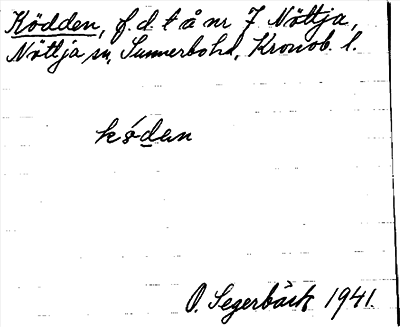 Ködden, f. d. t å nr 7 Nöttja,
Nöttja sn, Sunnerbo hd, Kronob. l.
kö́den
O. Segerbäck 1941.